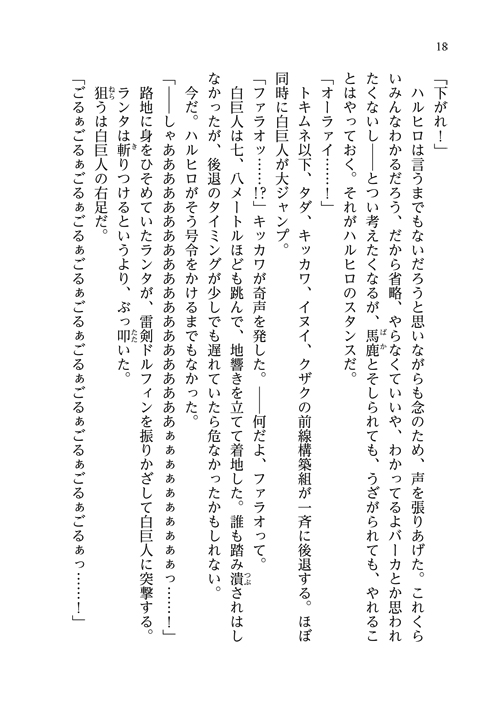 18
「下がれ！」
　ハルヒロは言うまでもないだろうと思いながらも念のため、声を張りあげた。これくら
いみんなわかるだろう、だから省略、やらなくていいや、わかってるよバーカとか思われ
たくないし――とつい考えたくなるが、馬鹿とそしられても、うざがられても、やれるこ
とはやっておく。それがハルヒロのスタンスだ。
「オーラァイ……！」
　トキムネ以下、タダ、キッカワ、イヌイ、クザクの前線構築組が一斉に後退する。ほぼ
同時に白巨人が大ジャンプ。
「ファラオッ……！？」キッカワが奇声を発した。――何だよ、ファラオって。
　白巨人は七、八メートルほども跳んで、地響きを立てて着地した。誰も踏み潰されはし
なかったが、後退のタイミングが少しでも遅れていたら危なかったかもしれない。
　今だ。ハルヒロがそう号令をかけるまでもなかった。
「――しゃああああああああああああああああああぁぁぁぁぁぁぁぁぁっ……！」
　路地に身をひそめていたランタが、雷剣ドルフィンを振りかざして白巨人に突撃する。
ランタは斬りつけるというより、ぶっ叩いた。
　狙うは白巨人の右足だ。
「ごるぁごるぁごるぁごるぁごるぁごるぁごるぁごるぁごるぁごるぁごるぁっ……！」